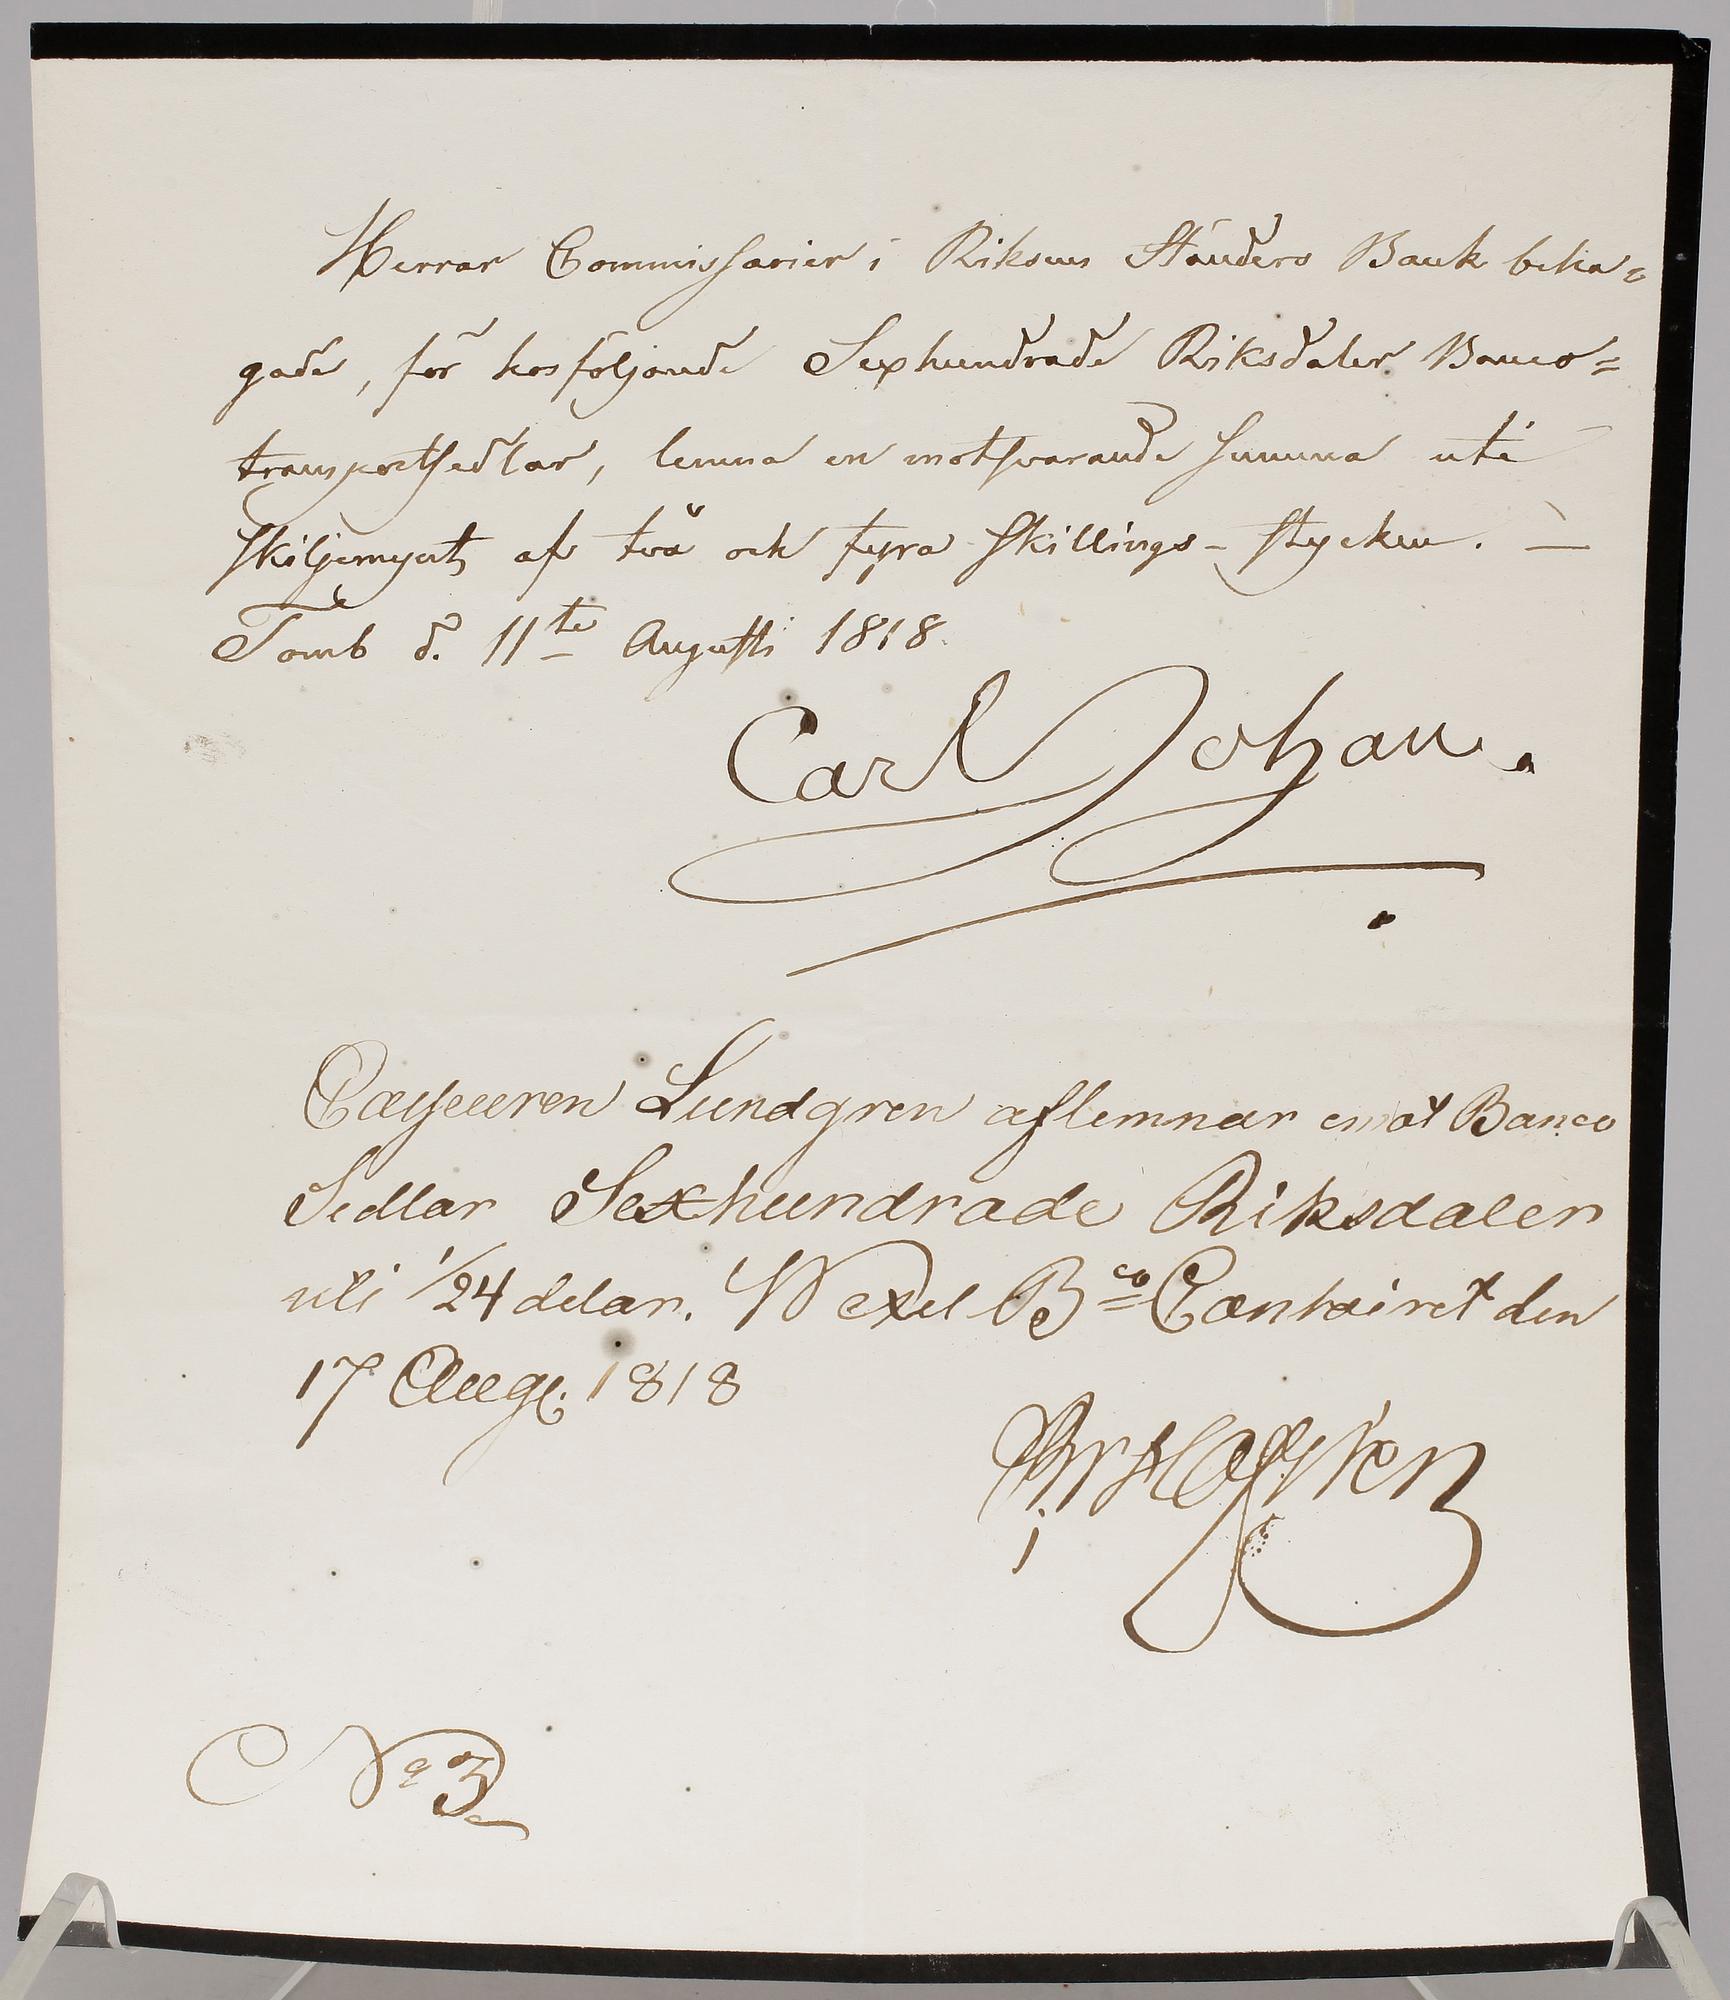 Herrar Commissarier i Riksens Ständers Bank beha=
gade, för hosföljande Sexhundrade Riksdaler Banco=
transportsedlar, lemna en motsvarande summa uti
skiljemynt af två och fyra skillings-stycken. —
Tomb d. 11te Augusti 1818.
Carl Johan.
Casseuren Lundgren aflemnar emot Banco
Sedlar Sexhundrade Riksdaler
uti 1/24 delar. Wexel Bco Contoiret den
17 Aug. 1818
No 3